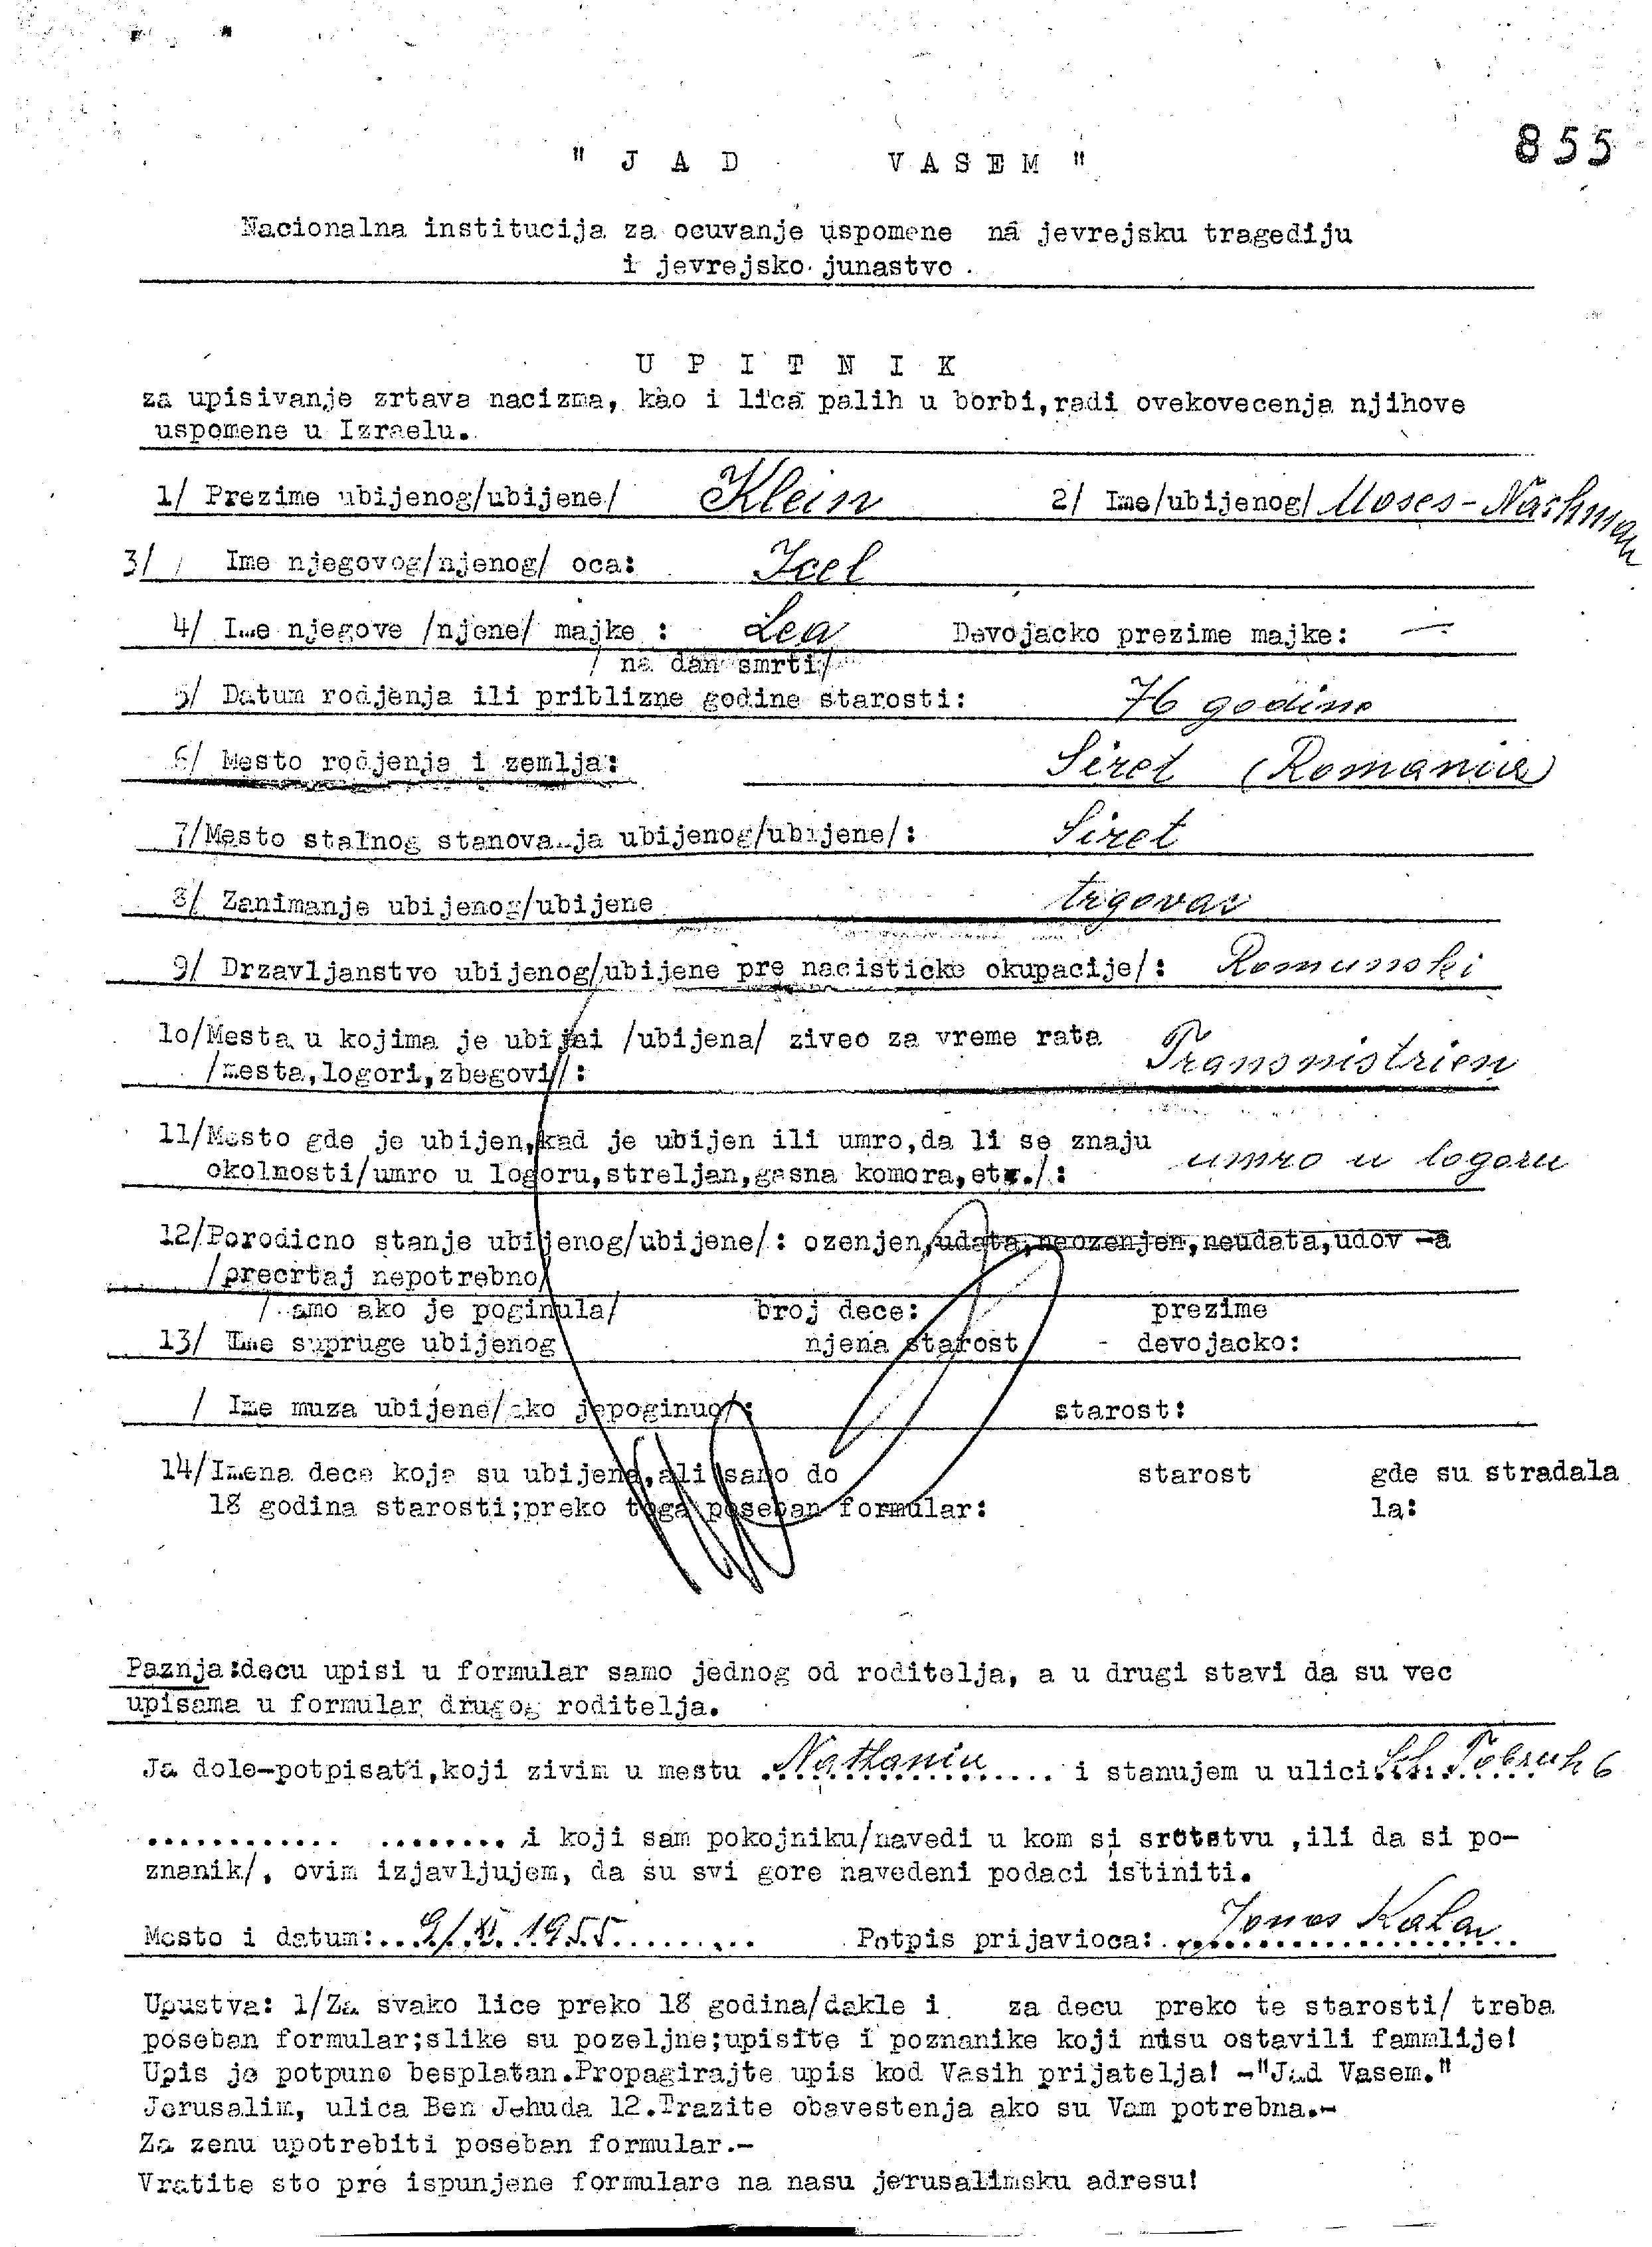 855
" J A D VASEM "
Nacionalna institucija za ocuvanje uspomene na jevrejsku tragediju
i jevrejsko junastvo.
U P I T N I K
za upisivanje zrtava nacizma, kao i lica palih u borbi, radi ovekovecenja njihove
uspomene u Izraelu.
1/ Prezime ubijenog/ubijene/ Klein 2/ Ime/ubijenog/ Moses-Nachman
3/ Ime njegovog/njenog/ oca: Icel
4/ Ime njegove /njene/ majke : Lea Devojacko prezime majke: —
/ na dan smrti/
5/ Datum rodjenja ili priblizne godine starosti: 76 godina
6/ Mesto rodjenja i zemlja: Siret (Romania)
7/Mesto stalnog stanovanja ubijenog/ubijene/: Siret
8/ Zanimanje ubijenog/ubijene trgovac
9/ Drzavljanstvo ubijenog/ubijene pre nacisticke okupacije/: Romunski
10/Mesta u kojima je ubijei /ubijena/ ziveo za vreme rata Transnistrien
/mesta,logori,zbegovi/:
11/Mesto gde je ubijen,kad je ubijen ili umro,da li se znaju umro u logoru
okolnosti/umro u logoru,streljan,gasna komora,etc./:
12/Porodicno stanje ubijenog/ubijene/: ozenjen,udata,neozenjen,neudata,udov -a
/precrtaj nepotrebno/
/ amo ako je poginula/ broj dece: prezime
13/ Ime supruge ubijenog njena starost - devojacko:
/ Ime muza ubijene/ako jepoginuo/: starost:
14/Imena dece koja su ubijena,ali samo do starost gde su stradala
18 godina starosti;preko toga poseban formular: la:
Paznja:decu upisi u formular samo jednog od roditelja, a u drugi stavi da su vec
upisama u formular drugog roditelja.
Ja dole-potpisati,koji zivim u mestu Nathaniu i stanujem u ulici 6
.................... i koji sam pokojniku/navedi u kom si srotstvu ,ili da si po-
znanik/, ovim izjavljujem, da su svi gore navedeni podaci istiniti.
Mesto i datum: 9/ 1955 Potpis prijavioca: Jonas
Upustva: 1/Za svako lice preko 18 godina/dakle i za decu preko te starosti/ treba
poseban formular;slike su pozeljne;upisite i poznanike koji nisu ostavili fammlije!
Upis je potpuno besplatan.Propagirajte upis kod Vasih prijatelja! -"Jad Vasem."
Jerusalim, ulica Ben Jehuda 12.Trazite obavestenja ako su Vam potrebna.-
Za zenu upotrebiti poseban formular.-
Vratite sto pre ispunjene formulare na nasu jerusalimsku adresu!